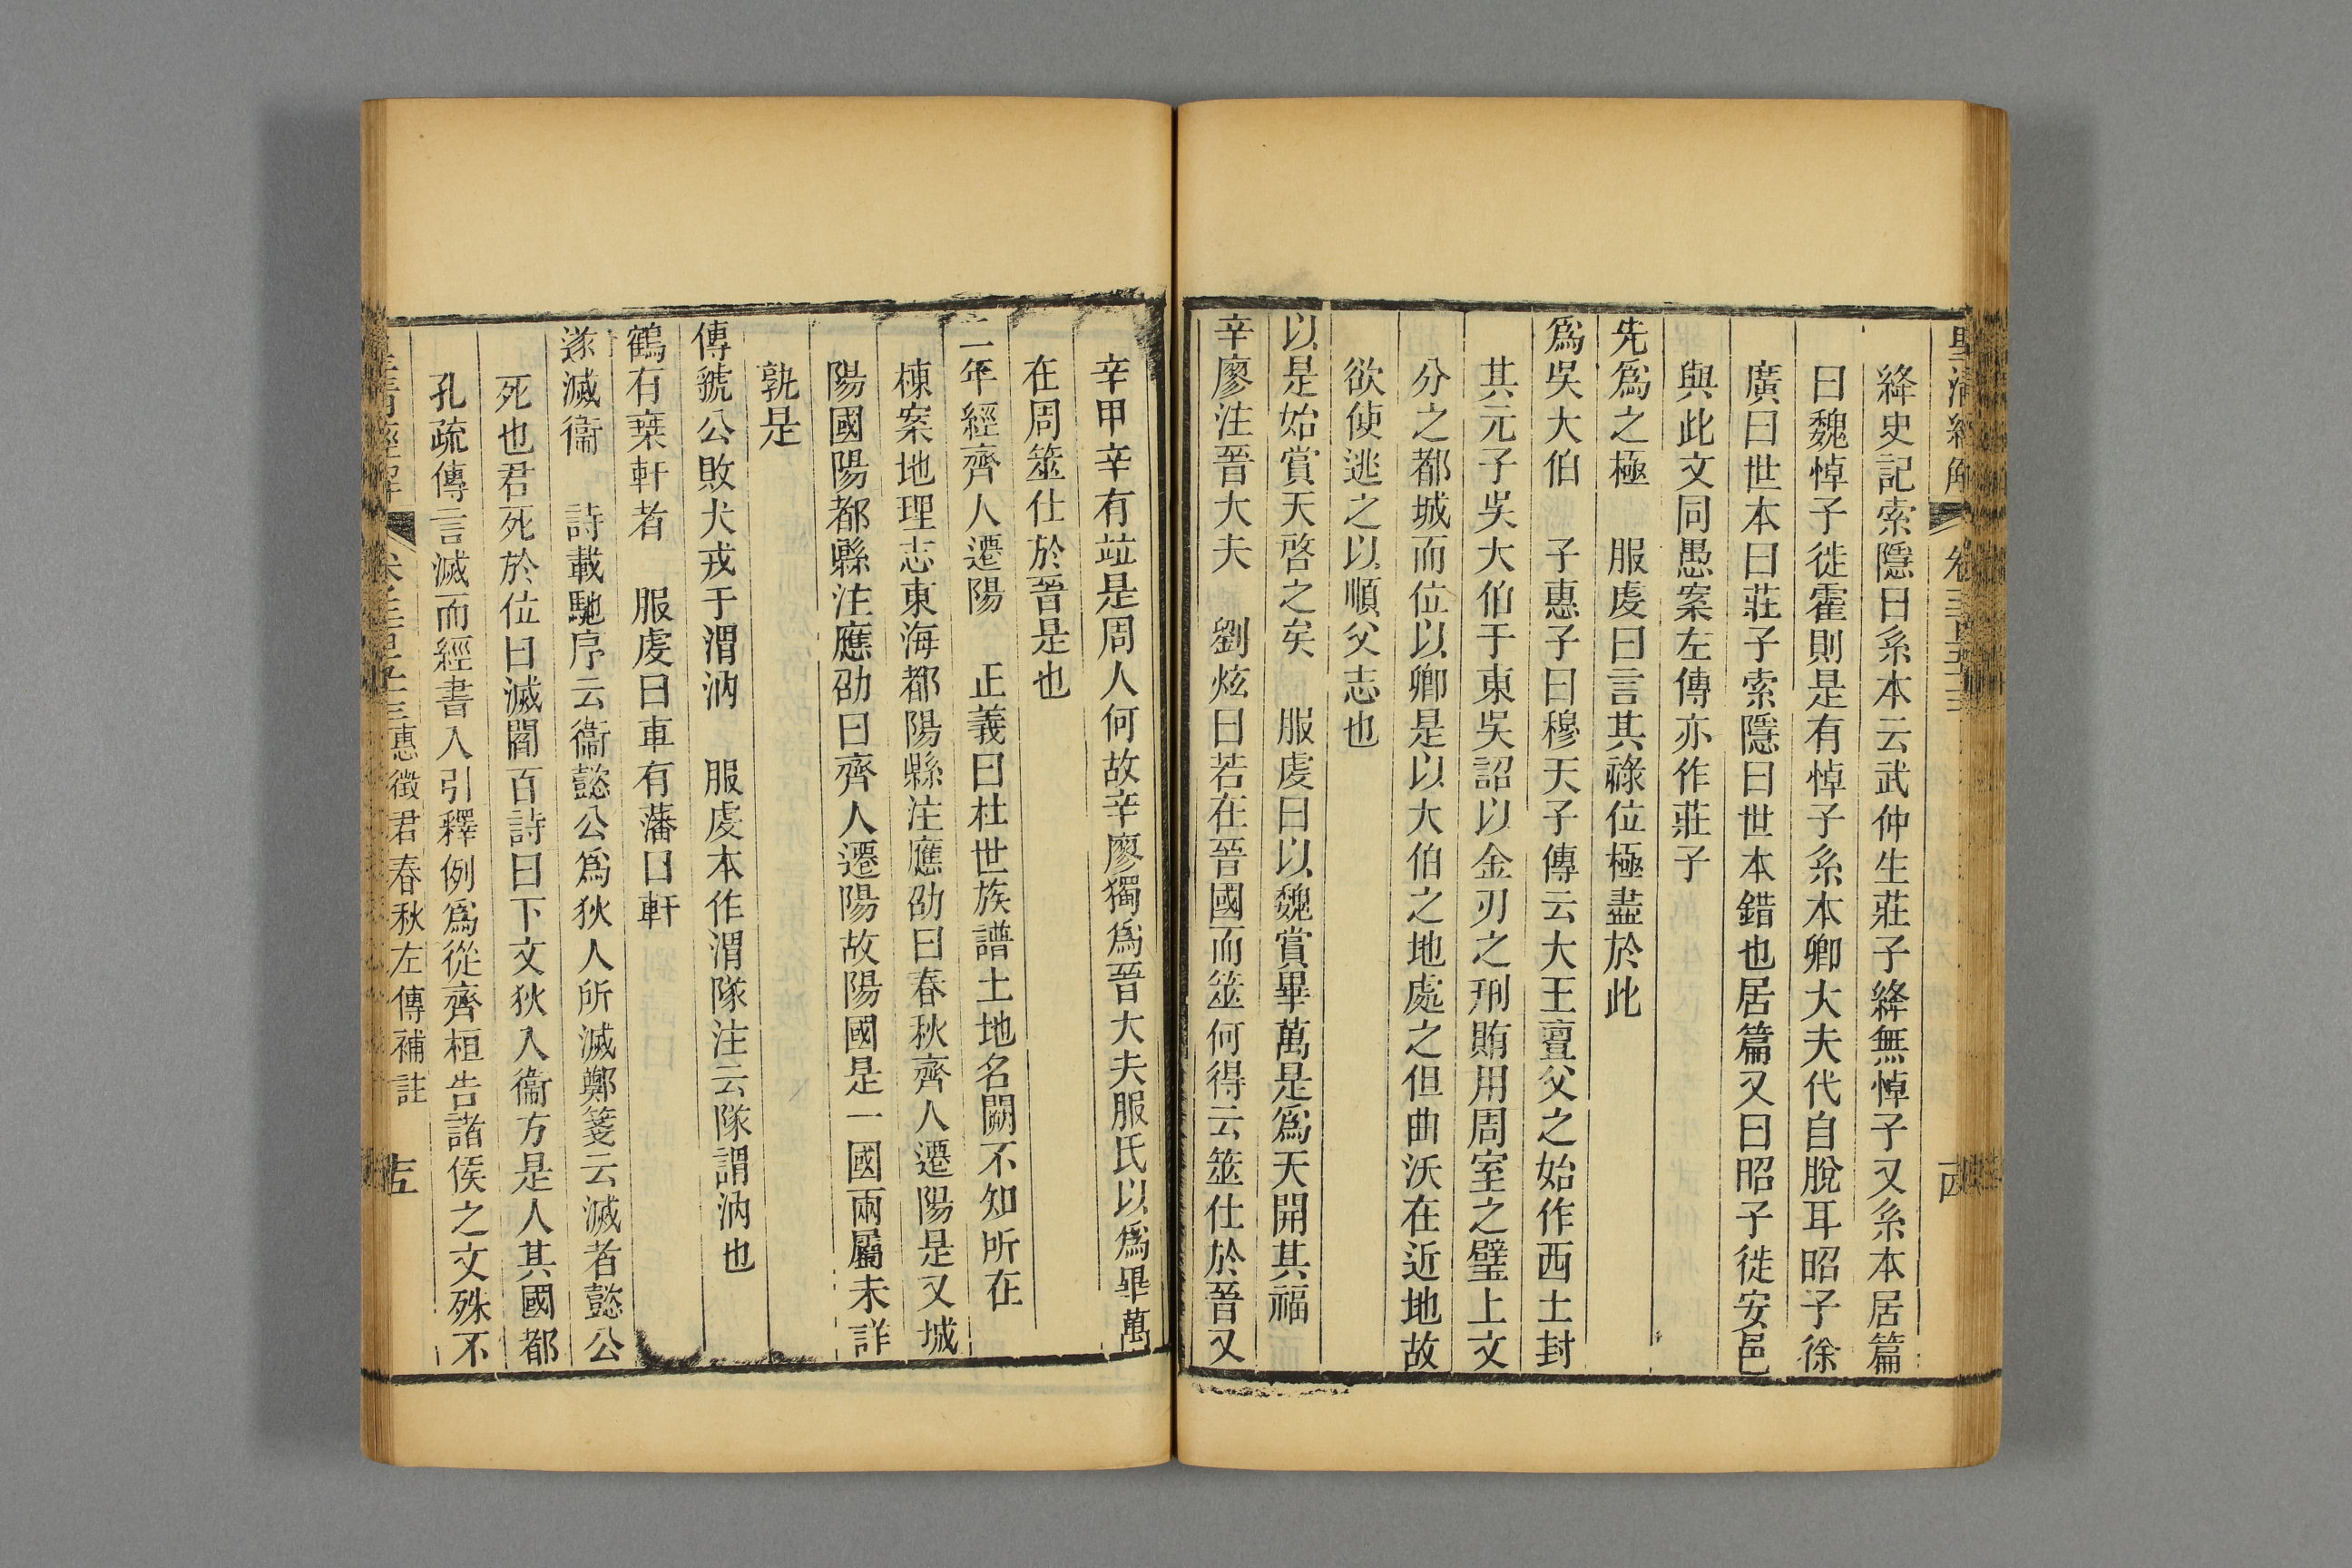 絳史記索隱曰系本云武仲生莊子絳無悼子又系本居篇
曰魏悼子徙霍則是有悼子系本卿大夫代自脫耳昭子徐
廣曰世本曰莊子索隱曰世本錯也居篇又曰昭子徙安邑
與此文同愚案左傳亦作莊子
先爲之極　服虔曰言其祿位極盡於此
爲吳大伯　子惠子曰穆天子傳云大王亶父之始作西土封
其元子吳大伯于東吳詔以金刃之刑賄用周室之璧上文
分之都城而位以卿是以大伯之地處之但曲沃在近地故
欲使逃之以順父志也
以是始賞天啓之矣　服虔曰以魏賞畢萬是爲天開其福
辛廖注晉大夫　劉炫曰若在晉國而筮何得云筮仕於晉又
辛甲辛有竝是周人何故辛廖獨爲晉大夫服氏以爲畢萬
在周筮仕於晉是也
二年經齊人遷陽　正義曰杜世族譜土地名闕不知所在
棟案地理志東海都陽縣注應劭曰春秋齊人遷陽是又城
陽國陽都縣注應劭曰齊人遷陽故陽國是一國兩屬未詳
孰是
傳虢公敗犬戎于渭汭　服虔本作渭隊注云隊謂汭也
鶴有椉軒者　服虔曰車有藩曰軒
遂滅衞　詩載馳序云衞懿公爲狄人所滅鄭箋云滅者懿公
死也君死於位曰滅閻百詩曰下文狄入衞方是人其國都
孔疏傳言滅而經書入引釋例爲從齊桓告諸侯之文殊不
惠徵君春秋左傳補註